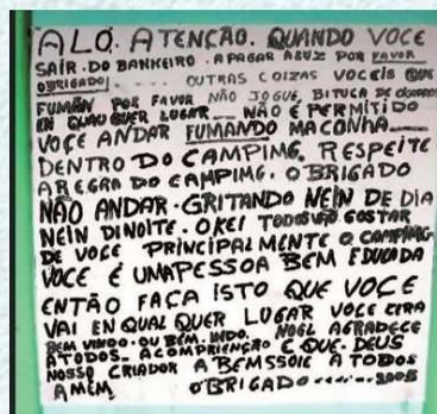 ALO. ATENCÃO. QUANDO VOCE
SAIR. DO BANHEIRO. APAGAR ALUZ POR FAVOR
OBRIGADO! .... OUTRAS COIZAS VOCEIS QUE
FUMÃN POR FAVOR NÃO JOGUE. BITUCA DE CIGARROS
EN QUAUQUER LUGAR... NÃO É PERMITIDO
VOÇE ANDAR FUMANDO MACONHA
DENTRO DO CAMPIMG. RESPEITE
A REGRA DO CAMPIMG. OBRIGADO
NÃO ANDAR. GRITANDO NEIN DE DIA
NEIN DINOITE. OKEI TODOS VÃO GOSTAR
DE VOCE PRINCIPALMENTE O CAMPIMG
VOCE É UMAPESSOA BEM EDUCADA
ENTÃO FAÇA ISTO QUE VOCE
VAI EN QUAL QUER LUGAR VOCE CERA
BEM VINDO. OU BEM. INDO. NOEL AGRADECE
ATODOS. ACOMPRIENÇÃO E QUE. DEUS
NOSSO CRIADOR ABEMSSOIE A TODOS
AMEM. OBRIGADO ....... 2005